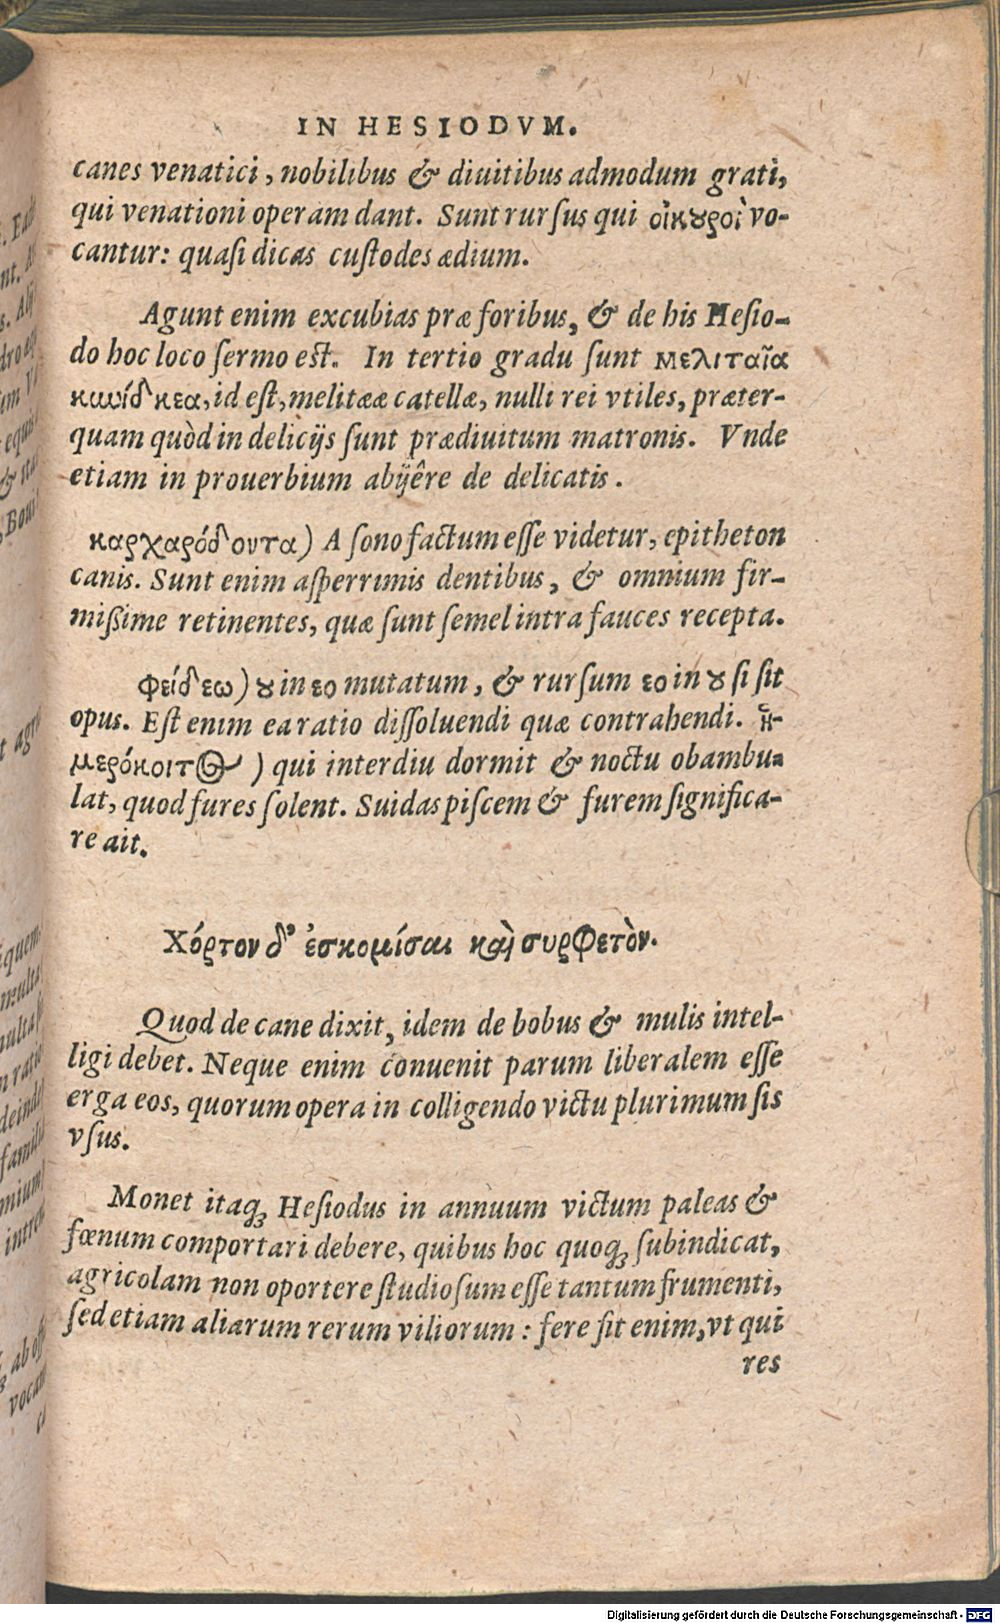 IN HESIODVM.
canes venatici, nobilibus & diuitibus admodum grati,
qui venationi operam dant. Sunt rursus qui οἰκουροὶ vo-
cantur: quasi dicas custodes ædium.
Agunt enim excubias præ foribus, & de his Hesio-
do hoc loco sermo est. In tertio gradu sunt μελιταῖα
κυνίδκεα, id est, melitææ catellæ, nulli rei vtiles, præter-
quam quòd in delicijs sunt prædiuitum matronis. Vnde
etiam in prouerbium abijêre de delicatis.
καρχαρόδοντα) A sono factum esse videtur, epitheton
canis. Sunt enim asperrimis dentibus, & omnium fir-
mißime retinentes, quæ sunt semel intra fauces recepta.
φείδεω) ȣ in εο mutatum, & rursum εο in ȣ si sit
opus. Est enim ea ratio dissoluendi quæ contrahendi. ἡ-
μερόκοιτος) qui interdiu dormit & noctu obambu-
lat, quod fures solent. Suidas piscem & furem significa-
re ait.
Χόρτον δ' ἐσκομίσαι καὶ συρφετὸν.
Quod de cane dixit, idem de bobus & mulis intel-
ligi debet. Neque enim conuenit parum liberalem esse
erga eos, quorum opera in colligendo victu plurimum sis
vsus.
Monet itaqꝫ Hesiodus in annuum victum paleas &
fœnum comportari debere, quibus hoc quoqꝫ subindicat,
agricolam non oportere studiosum esse tantum frumenti,
sed etiam aliarum rerum viliorum: fere sit enim, vt qui
res
Digitalisierung gefördert durch die Deutsche Forschungsgemeinschaft - DFG